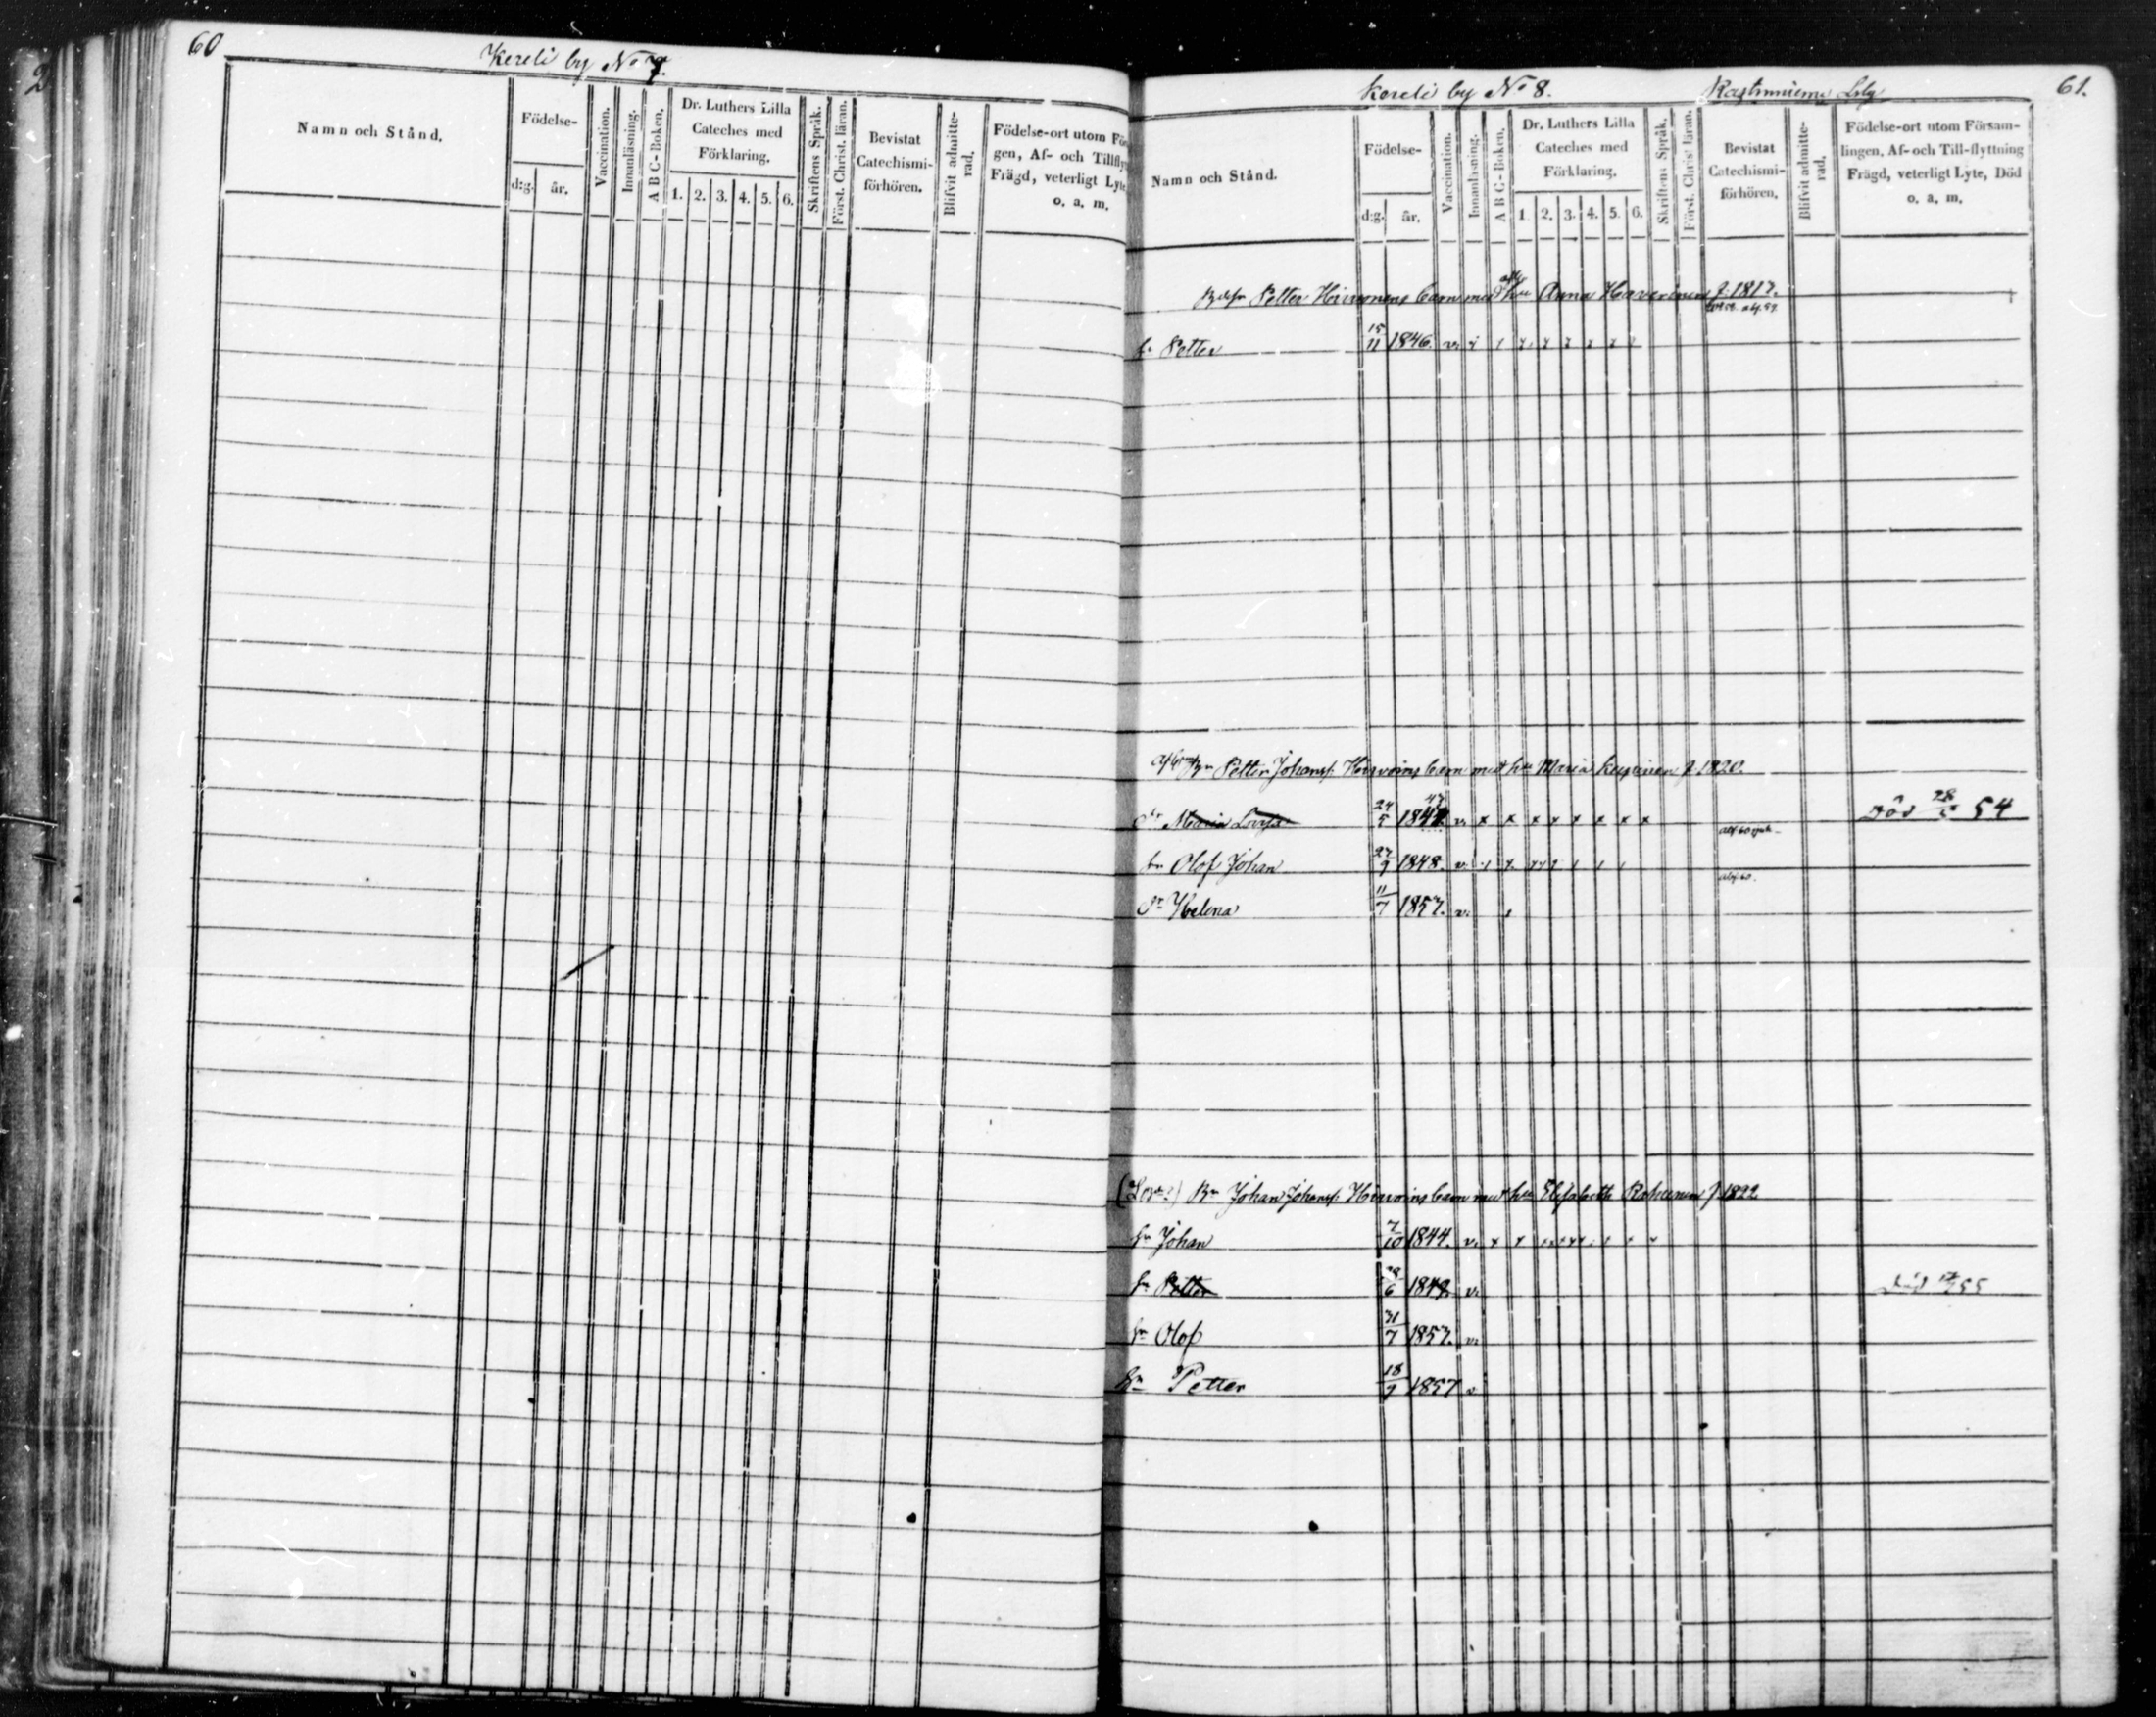 60
Kereli by No 7.
Namn och Stånd.
Födelse-
d:g.
år.
Vaccination.
Innanläsning.
A B C-Boken.
Dr. Luthers Lilla
Cateches med
Förklaring.
1. 2. 3. 4. 5. 6.
Skriftens Språk.
Först. Christ. läran.
Bevistat
Catechismi-
förhören.
Blifvit admitte-
rad.
Födelse-ort utom För
gen, Af- och Tillfly
Frägd, veterligt Lyte
o. a. m.
Kereli by No 8.
61.
Namn och Stånd.
Födelse-
d:g.
år.
Vaccination.
Innanläsning.
A B C-Boken.
Dr. Luthers Lilla
Cateches med
Förklaring.
1. 2. 3. 4. 5. 6.
Skriftens Språk.
Först. Christ. läran.
Bevistat
Catechismi-
förhören.
Blifvit admitte-
rad.
Födelse-ort utom Försam-
lingen, Af- och Till-flyttning
Frägd, veterligt Lyte, Död
o. a. m.
Petter Hirvonens barn med Hu Anna Haverinen f. 1817.
Sn Petter 15/11 1846. v.
Bn Petter Johansf. Hirvoins barn med hu Maria f. 1820.
Dr Maria Lovisa 24/5 1847 v. x x x x x x x x Död 28/5 54
Sn Olof Johan 27/9 1848. v.
Dr Helena 11/7 1857. v.
Bn Johan Johansf. Hirvoins barn med hu Elisabeth f 1822
Sn Johan 7/10 1844. v.
Sn Petter 28/6 1849 v. Död 55
Sn Olof 31/7 1857. v.
Sn Petter 18/9 1857 v